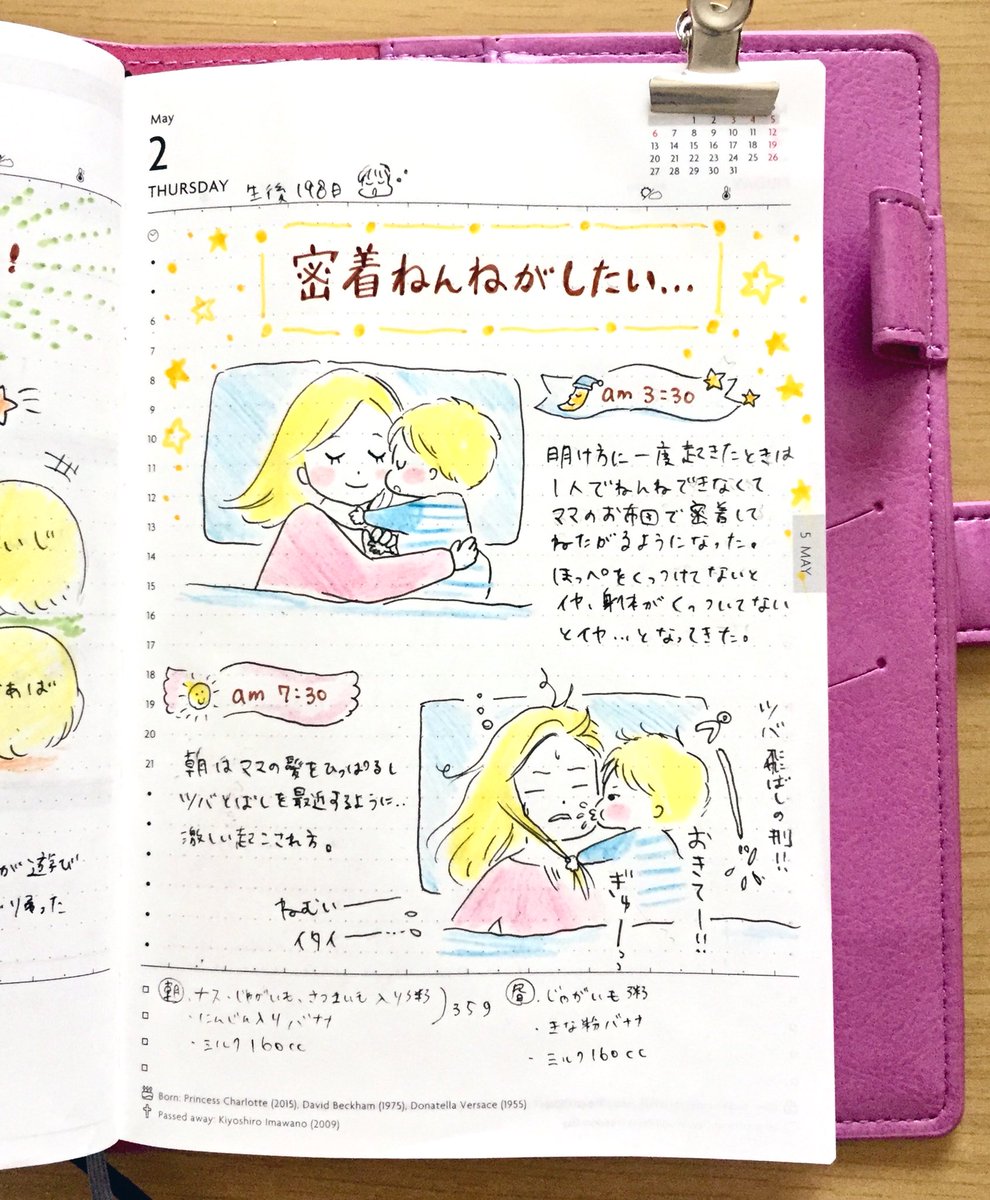 May
2
THURSDAY 生後198日
1 2 3 4 5
6 7 8 9 10 11 12
13 14 15 16 17 18 19
20 21 22 23 24 25 26
27 28 29 30 31
密着ねんねがしたい…
am 3:30
明け方に一度起きたときは
1人でねんねできなくて
ママのお布団で密着して
ねたがるようになった。
ほっぺをくっつけてないと
イヤ、身体がくっついてない
とイヤ…となってきた。
am 7:30
朝はママの髪をひっぱるし
ツバとばしを最近するように…
激しい起こされ方。
ねむい
イタイ
ツバ飛ばしの刑!!
プ
おきてー!!
ぎゅーっ
6
7
8
9
10
11
12
13
14
15
16
17
18
19
20
21
5 MAY
朝 ・ナス・じゃがいも、さつまいも入り粥
・にんじん入りバナナ
359
・ミルク160cc
昼 ・じゃがいも粥
・きな粉バナナ
・ミルク160cc
Born: Princess Charlotte (2015), David Beckham (1975), Donatella Versace (1955)
Passed away: Kiyoshiro Imawano (2009)
!
いじ
あば
が遊び
り帰った